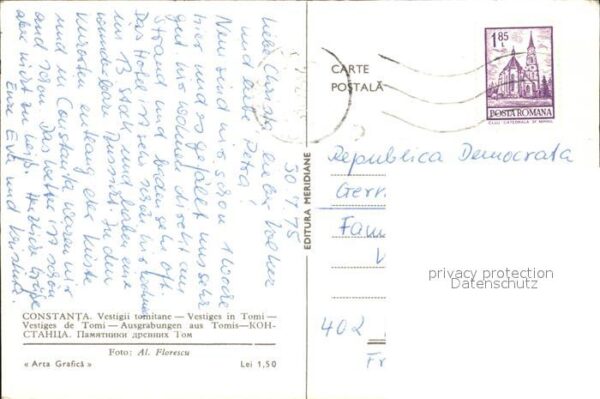 30.7.75
Liebe Christa, lieber Volker
und liebe Petra!
Nun sind wir schon 1 Woche
hier und es gefällt uns sehr
gut. Wir wohnen direkt am
Strand und baden sehr oft.
Das Hotel ist sehr schön wir wohnen
im 13. Stock und haben eine
wunderbare Aussicht zu den
Küste
und in Constanta waren wir
auch schon. Das Wetter ist schön
aber nicht zu heiß. Herzliche Grüße
Eure Eva und
CONSTANȚA. Vestigii tomitane — Vestiges in Tomi —
Vestiges de Tomi — Ausgrabungen aus Tomis—КОН-
СТАНЦА. Памятники древних Том
Foto: Al. Florescu
« Arta Grafică »
Lei 1,50
EDITURA MERIDIANE
CARTE
POSTALĂ
1,85
L
POSTA ROMANA
CLUJ CATEDRALA SF. MIHAIL
Republica Democrata
Ger
Fam
privacy protection
Datenschutz
402
Fr